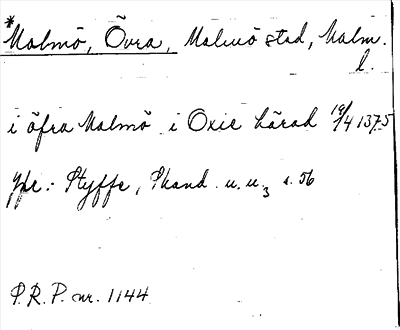 *Malmö, Övra, Malmö stad, Malm.
l.
i öfra Malmö i Oxie härad 19/4 1375
Ype: Styffe, Skand. u. u. 3 s. 56
P.R.P. nr. 1144